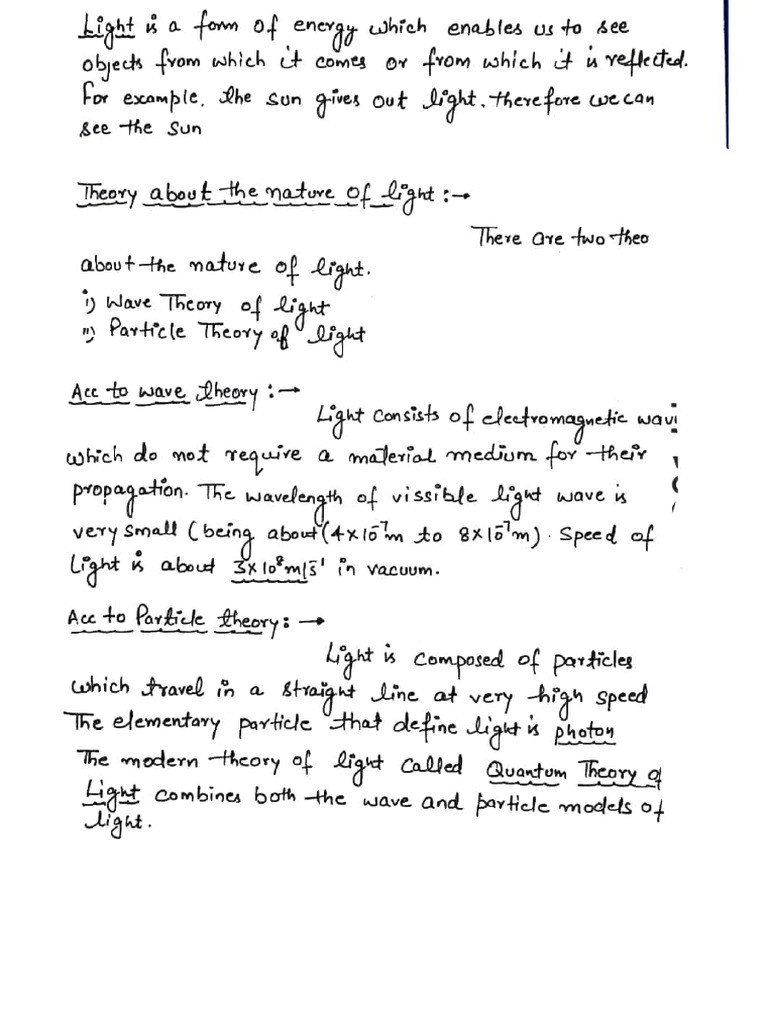 Light is a form of energy which enables us to see
objects from which it comes or from which it is reflected.
For example. the sun gives out light. therefore we can
see the sun
Theory about the nature of light :→
There are two theo
about the nature of light.
i) Wave Theory of light
ii) Particle Theory of light
Acc to wave theory :→
Light consists of electromagnetic wavi
which do not require a material medium for their
propagation. The wavelength of vissible light wave is
very small (being about (4×10⁻⁷m to 8×10⁻⁷m). Speed of
light is about 3×10⁸m/s¹ in vacuum.
Acc to Particle theory: →
Light is composed of particles
which travel in a straight line at very high speed
The elementary particle that define light is photon
The modern theory of light called Quantum Theory of
Light combines both the wave and particle models of
light.